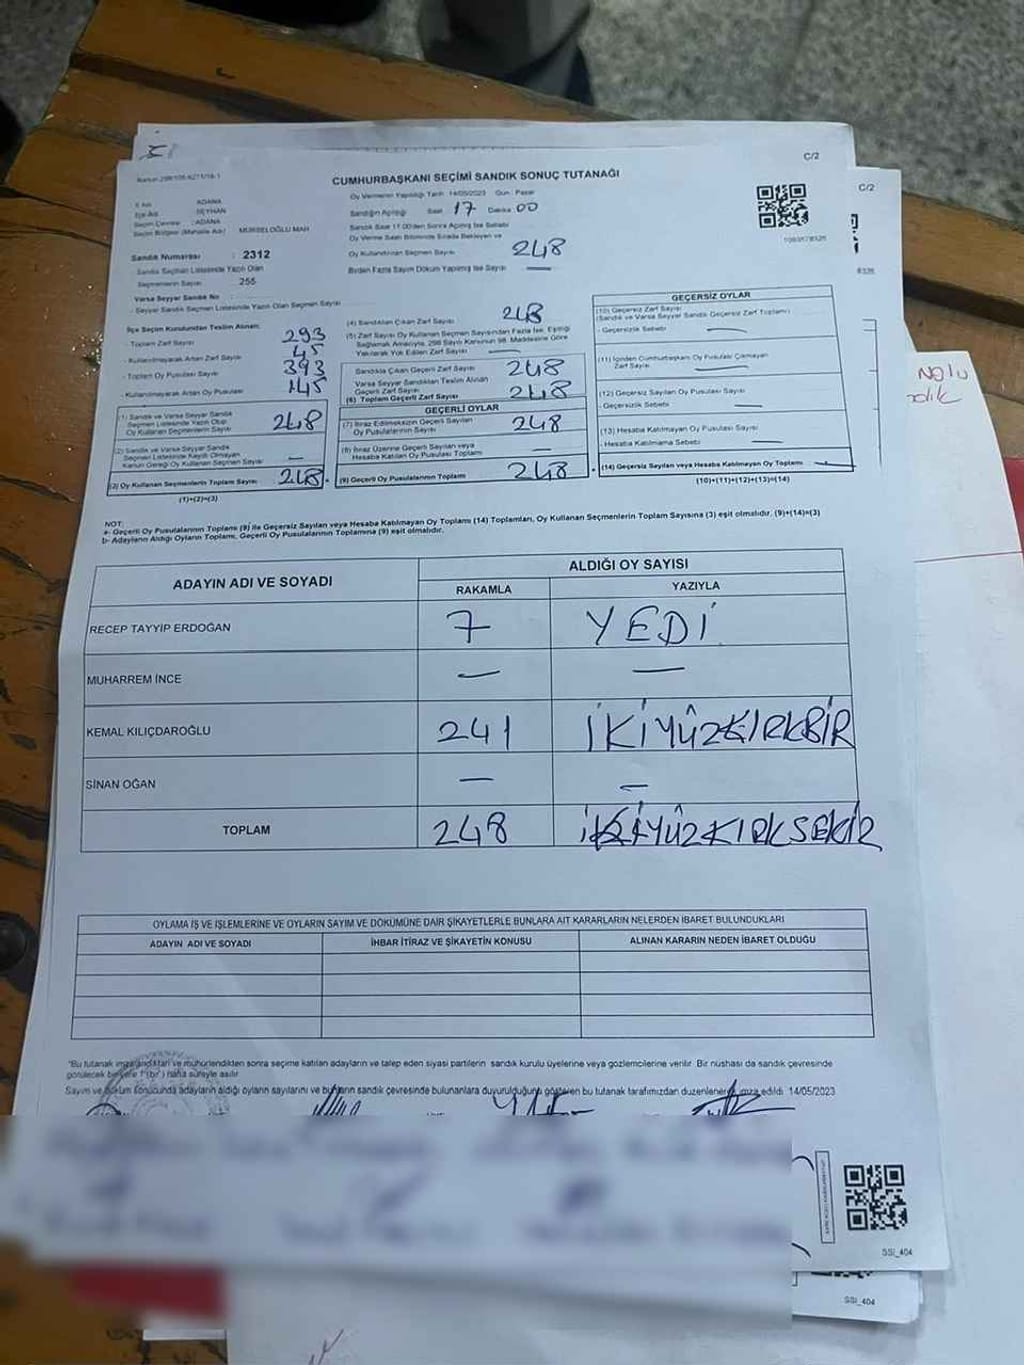 C/2
CUMHURBAŞKANI SEÇİMİ SANDIK SONUÇ TUTANAĞI
C/2
İl Adı ADANA
İlçe Adı SEYHAN
Seçim Çevresi : ADANA
Seçim Bölgesi (Mahalle Adı) MÜRSELOĞLU MAH
Sandık Numarası : 2312
Sandık Seçmen Listesinde Yazılı Olan
Seçmenlerin Sayısı 255
Oy Vermenin Yapıldığı Tarih 14/05/2023 Gün : Pazar
Sandığın Açılışı Saat 17 Dakika 00
Sandık Saat 17.00'den Sonra Açılmış İse Sebebi
Oy Verme Saati Bitiminde Sırada Bekleyen ve
Oy Kullandırılan Seçmen Sayısı 248
Birden Fazla Sayım Döküm Yapılmış İse Sayısı —
Varsa Seyyar Sandık No
- Seyyar Sandık Seçmen Listesinde Yazılı Olan Seçmen Sayısı
İlçe Seçim Kurulundan Teslim Alınan:
- Toplam Zarf Sayısı 293
- Kullanılmayarak Artan Zarf Sayısı 45
- Toplam Oy Pusulası Sayısı 393
- Kullanılmayarak Artan Oy Pusulası 145
(1) Sandık ve Varsa Seyyar Sandık
Seçmen Listesinde Yazılı Olup
Oy Kullanan Seçmenlerin Sayısı 248
(2) Sandık ve Varsa Seyyar Sandık
Seçmen Listesinde Kayıtlı Olmayan
Kanun Gereği Oy Kullanan Seçmen Sayısı —
(3) Oy Kullanan Seçmenlerin Toplam Sayısı 248
(1)+(2)=(3)
(4) Sandıktan Çıkan Zarf Sayısı 248
(5) Zarf Sayısı Oy Kullanan Seçmen Sayısından Fazla İse, Eşitliği
Sağlamak Amacıyla, 298 Sayılı Kanunun 98. Maddesine Göre
Yakılarak Yok Edilen Zarf Sayısı —
Sandıkta Çıkan Geçerli Zarf Sayısı 248
Varsa Seyyar Sandıktan Teslim Alınan
Geçerli Zarf Sayısı
(6) Toplam Geçerli Zarf Sayısı 248
GEÇERLİ OYLAR
(7) İtiraz Edilmeksizin Geçerli Sayılan
Oy Pusulalarının Sayısı 248
(8) İtiraz Üzerine Geçerli Sayılan veya
Hesaba Katılan Oy Pusulası Toplamı —
(9) Geçerli Oy Pusulalarının Toplamı 248
GEÇERSİZ OYLAR
(10) Geçersiz Zarf Sayısı
(Sandık ve Varsa Seyyar Sandık Geçersiz Zarf Toplamı)
- Geçersizlik Sebebi —
(11) İçinden Cumhurbaşkanı Oy Pusulası Çıkmayan
Zarf Sayısı —
(12) Geçersiz Sayılan Oy Pusulası Sayısı
- Geçersizlik Sebebi —
(13) Hesaba Katılmayan Oy Pusulası Sayısı
- Hesaba Katılmama Sebebi —
(14) Geçersiz Sayılan veya Hesaba Katılmayan Oy Toplamı —
(10)+(11)+(12)+(13)=(14)
NOT:
a- Geçerli Oy Pusulalarının Toplamı (9) ile Geçersiz Sayılan veya Hesaba Katılmayan Oy Toplamı (14) Toplamları, Oy Kullanan Seçmenlerin Toplam Sayısına (3) eşit olmalıdır. (9)+(14)=(3)
b- Adayların Aldığı Oyların Toplamı, Geçerli Oy Pusulalarının Toplamına (9) eşit olmalıdır.
ADAYIN ADI VE SOYADI ALDIĞI OY SAYISI
RAKAMLA YAZIYLA
RECEP TAYYİP ERDOĞAN 7 YEDİ
MUHARREM İNCE — —
KEMAL KILIÇDAROĞLU 241 İKİYÜZKIRKBİR
SİNAN OĞAN — —
TOPLAM 248 İKİYÜZKIRKSEKİZ
OYLAMA İŞ VE İŞLEMLERİNE VE OYLARIN SAYIM VE DÖKÜMÜNE DAİR ŞİKAYETLERLE BUNLARA AİT KARARLARIN NELERDEN İBARET BULUNDUKLARI
ADAYIN ADI VE SOYADI İHBAR İTİRAZ VE ŞİKAYETİN KONUSU ALINAN KARARIN NEDEN İBARET OLDUĞU
"Bu tutanak imzalandıktan ve mühürlendikten sonra seçime katılan adayların ve talep eden siyasi partilerin sandık kurulu üyelerine veya gözlemcilerine verilir. Bir nüshası da sandık çevresinde
görülecek bir yere 1 (bir) hafta süreyle asılır
Sayım ve döküm sonucunda adayların aldığı oyların sayılarını ve bunların sandık çevresinde bulunanlara duyurulduğunu gösteren bu tutanak tarafımızdan düzenlenerek imza edildi. 14/05/2023
SSI_404
SSI_404